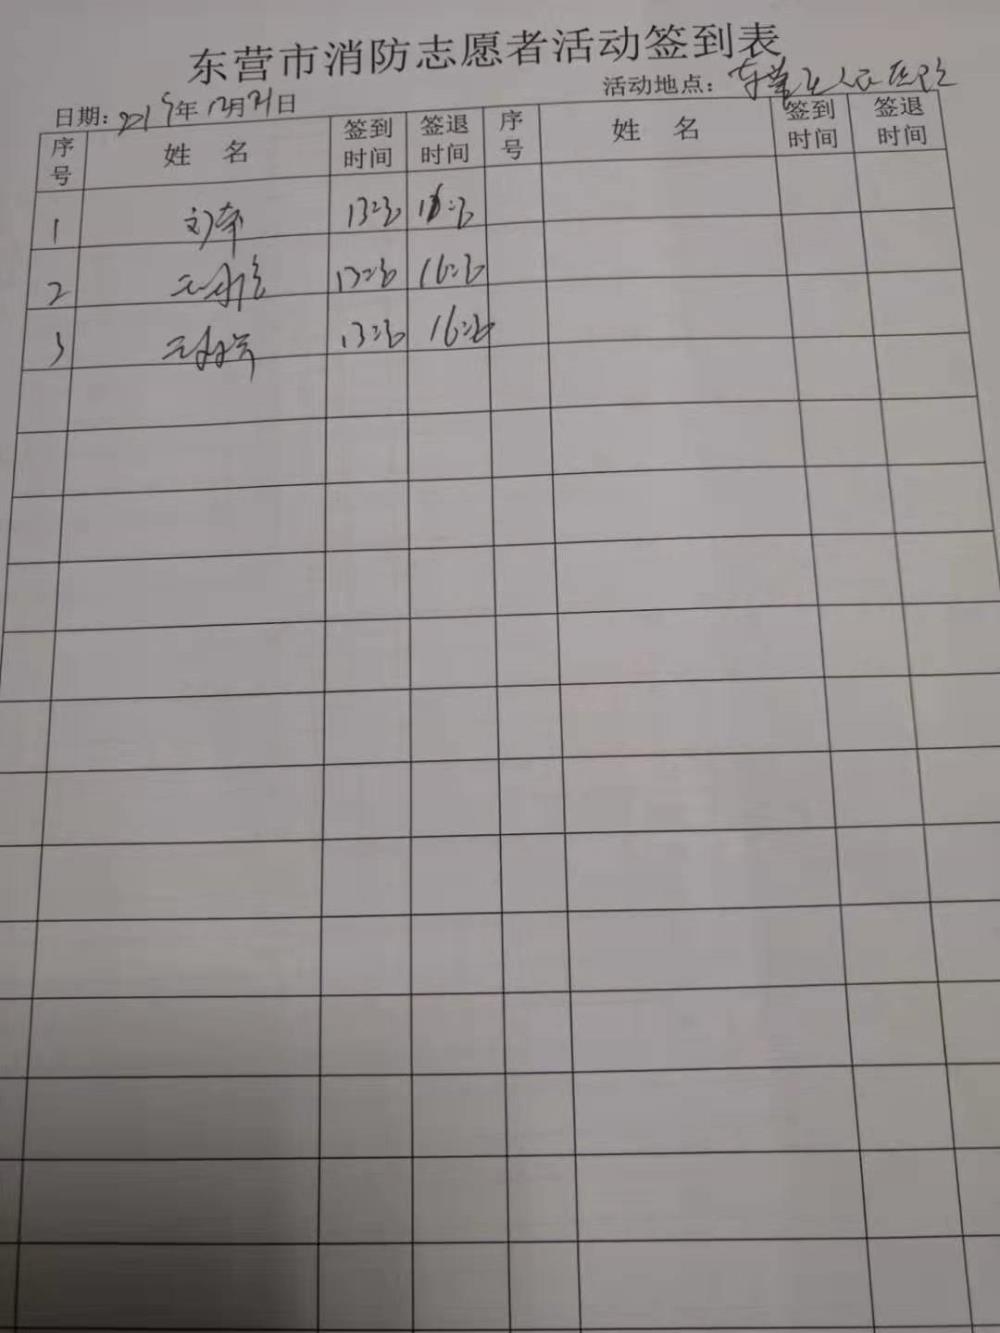 东营市消防志愿者活动签到表
日期：2019年12月21日 活动地点：东营区人民医院
序号 姓 名 签到时间 签退时间 序号 姓 名 签到时间 签退时间
1 13:30 16:30
2 13:30 16:30
3 13:30 16:30